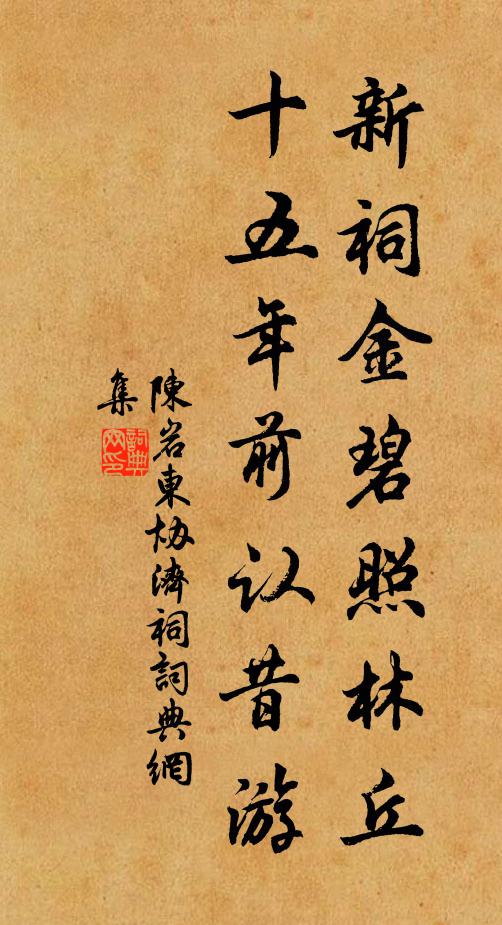 新祠金碧照林丘
十五年前认昔游
陳岩東协濟祠詞典網
集
詞典
网印